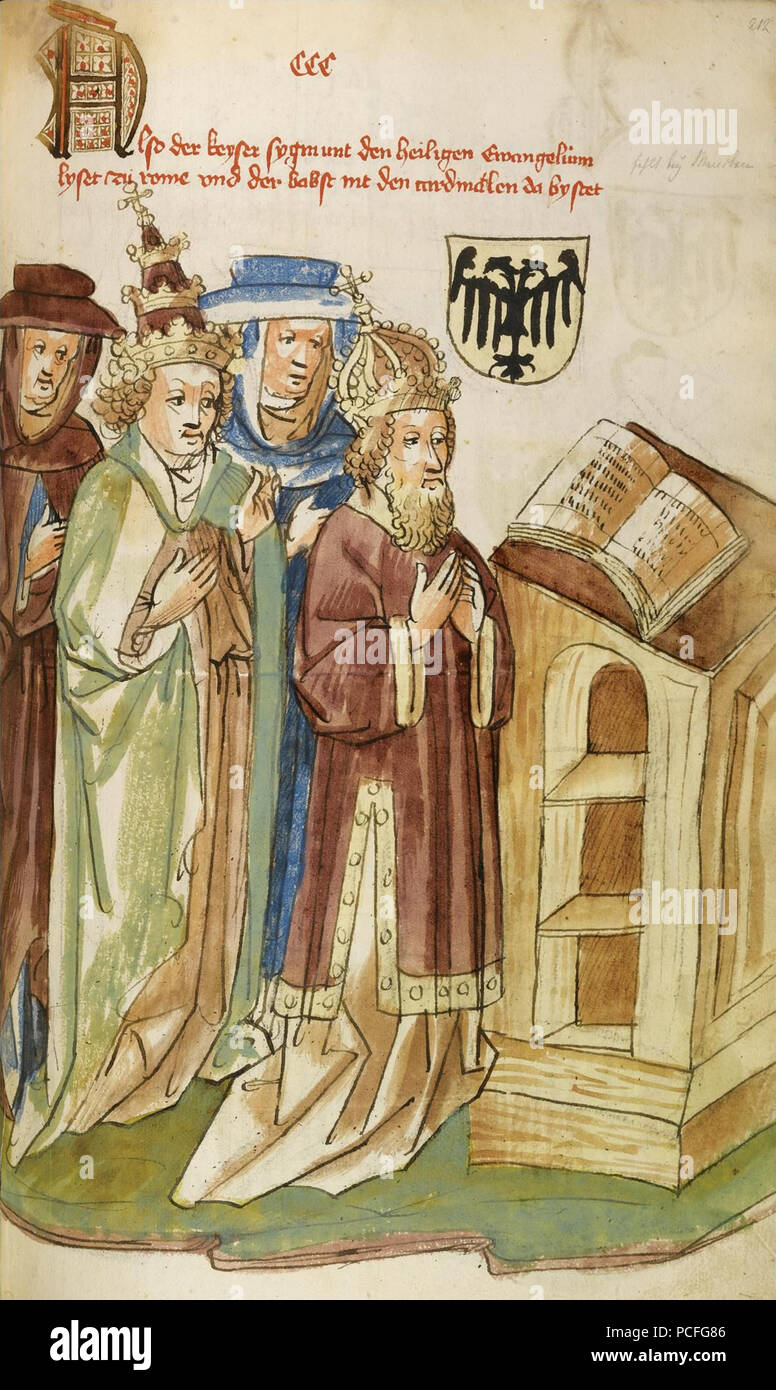 212
CCC
Also der keyser sygmunt den heiligen Ewangelium
lyset czu rome vnd der babst mt den cardinälen da bystet
alamy
alamy
alamy
Image ID: PCFG86
www.alamy.com